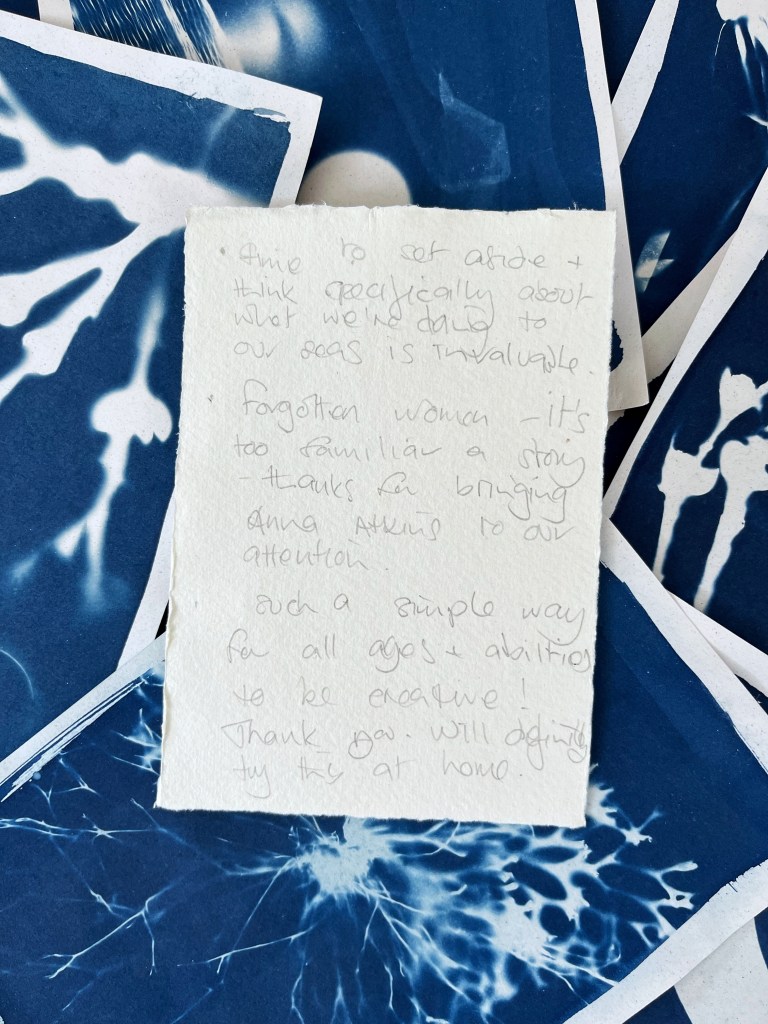 • time to set aside +
think specifically about
what we're doing to
our seas is invaluable.
• forgotten women - it's
too familiar a story
- thanks for bringing
Anna Atkins to our
attention.
• such a simple way
for all ages + abilities
to be creative!
Thank you. Will definitely
try this at home.